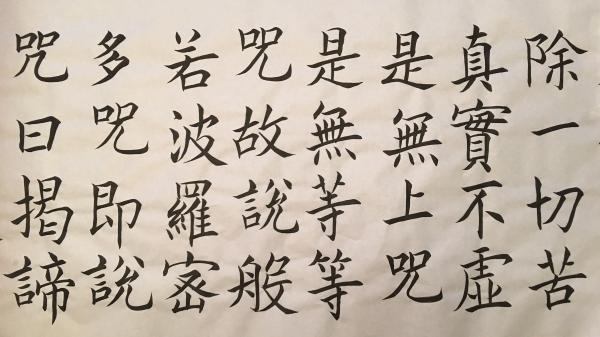 除一切苦
真實不虛
是無上咒
是無等等
咒故說般
若波羅密
多咒即說
咒曰揭諦